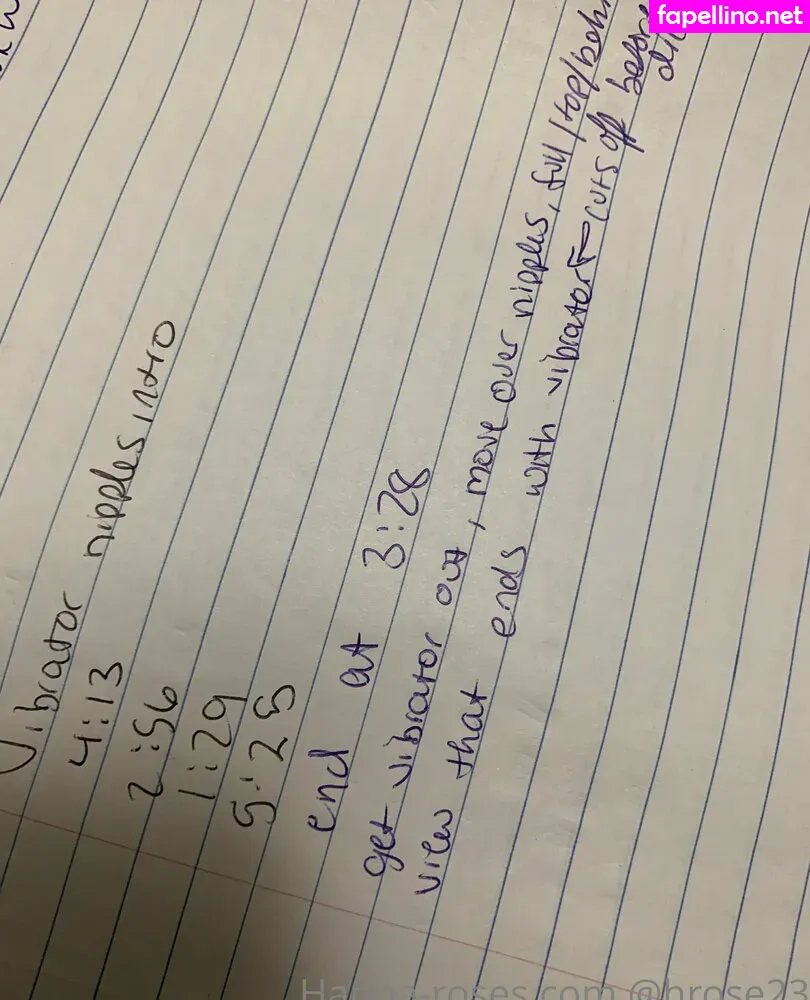 fapellino.net
Vibrator nipples intro
4:13
2:56
1:29
5:25
end at 3:28
get vibrator out, move over nipples, full/top/behi
view that ends with vibrator ← cuts off before
@hrose23